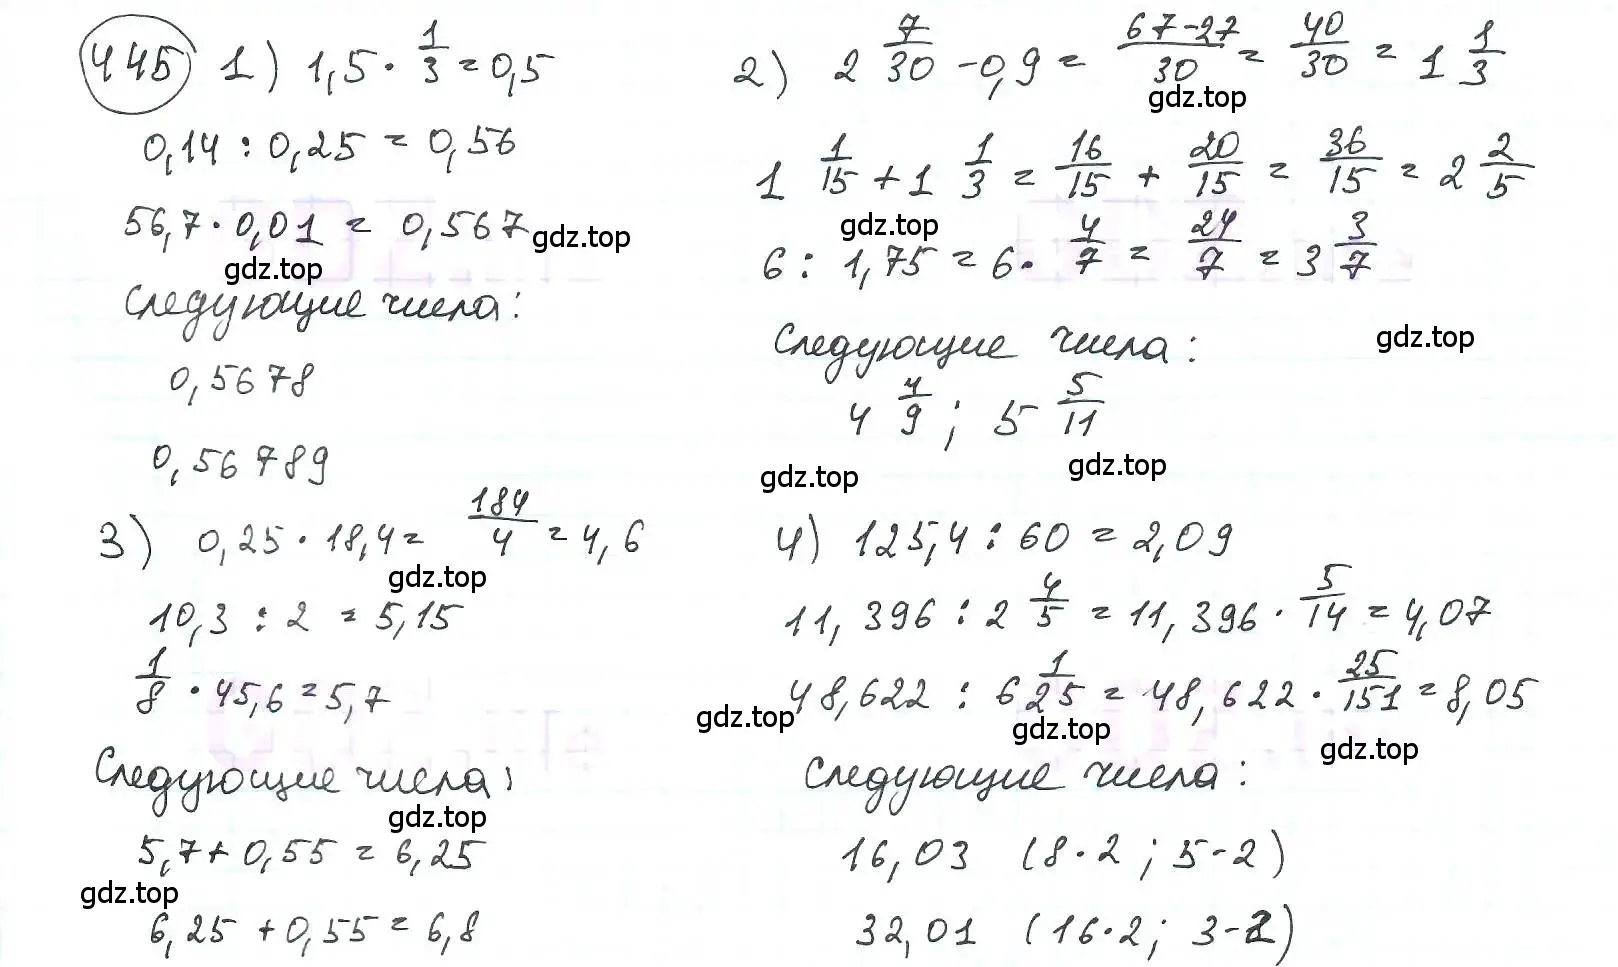 445 1) 1,5 · 1/3 = 0,5
0,14 : 0,25 = 0,56
56,7 · 0,01 = 0,567
gdz.top
gdz.top
Следующие числа:
0,5678
0,56789
2) 2 7/30 - 0,9 = 67-27/30 = 40/30 = 1 1/3
gdz.top
1 1/15 + 1 1/3 = 16/15 + 20/15 = 36/15 = 2 2/5
gdz.top
6 : 1,75 = 6 · 4/7 = 24/7 = 3 3/7
Следующие числа:
gdz.top
4 4/9 ; 5 5/11
gdz.top
gdz.top
3) 0,25 · 18,4 = 184/4 = 4,6
gdz.top
10,3 : 2 = 5,15
1/8 · 45,6 = 5,7
Следующие числа:
gdz.top
5,7 + 0,55 = 6,25
gdz.top
6,25 + 0,55 = 6,8
4) 125,4 : 60 = 2,09
11,396 : 2 4/5 = 11,396 · 5/14 = 4,07
48,622 : 6 1/25 = 48,622 · 25/151 = 8,05
gdz.top
gdz.top
gdz.top
Следующие числа:
16,03 (8·2 ; 5-2)
32,01 (16·2 ; 3-2)